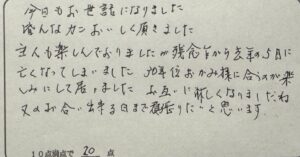 今日もお世話になりました
おいしく頂きました
主人も楽しんでおりましたが残念ながら去年の5月に
亡くなってしまいました おかみ様に合うのが楽
しみにして居ました お互いに淋しくなりましたね
又お合い出来る日まで頑張りたいと思います
10点満点で 20 点